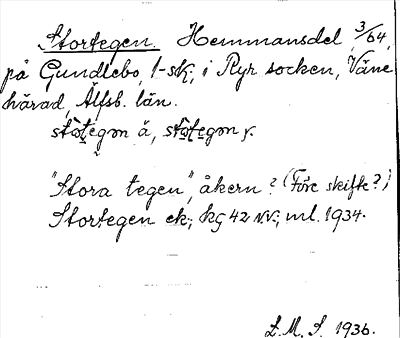 Stortegen. Hemmansdel, 3/64,
på Gundlebo, 1-sk; i Ryr socken, Väne
härad, Älfsb. län.
stọ̀tegən ä, stọ̀tegən y.
"Stora tegen", åkern? (Före skifte?)
Stortegen ek; kç 42 N.V.; ml. 1934.
L. M. S. 1936.